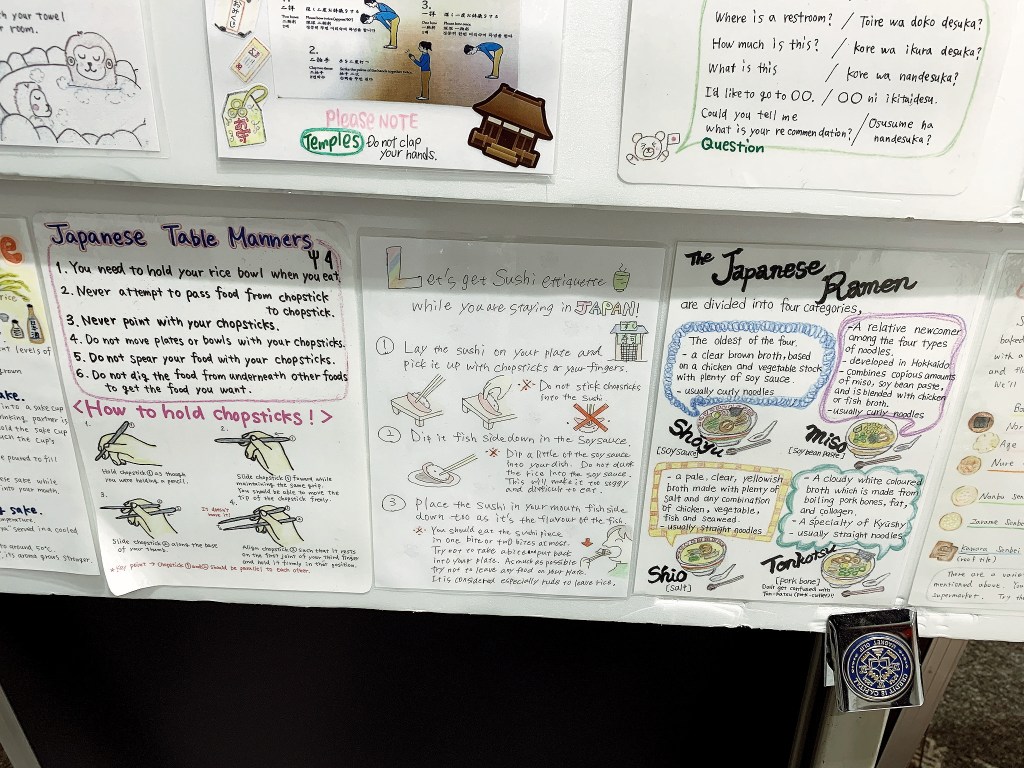 your towel
room.
3.
一拝
二拝
二拍手
2.
Please NOTE
Temples Do not clap
your hands.
Where is a restroom? / Toire wa doko desuka?
How much is this? / kore wa ikura desuka?
What is this / kore wa nandesuka?
I'd like to go to OO. / OO ni ikitaidesu.
Could you tell me
what is your recommendation? / Osusume ha
nandesuka?
Question
rice
levels of
Japanese Table Manners
1. You need to hold your rice bowl when you eat.
2. Never attempt to pass food from chopstick
to chopstick.
3. Never point with your chopsticks.
4. Do not move plates or bowls with your chopsticks.
5. Do not spear your food with your chopsticks.
6. Do not dig the food from underneath other foods
to get the food you want.
<How to hold chopsticks!>
1.
Hold chopstick① as though
you were holding a pencil.
2.
Slide chopstick① foward while
maintaining the same grip.
You should be able to move the
tip of the chopstick freely.
3.
Slide chopstick② along the base
of your thumb.
4.
It doesn't
move it!
Align chopstick② such that it rests
on the first joint of your third finger
and hold it firmly in that position.
*Key point → Chopstick①and② should be parallel to each other.
Let's get Sushi ettiquette
while you are staying in JAPAN!
① Lay the sushi on your plate and
pick it up with chopsticks or your fingers.
※ Do not stick chopsticks
into the Sushi
② Dip it fish side down in the Soy sauce.
※ Dip a little of the soy sauce
into your dish. Do not dunk
the rice into the soy sauce.
This will make it too soggy
and difficult to eat.
③ Place the sushi in your mouth fish side
down too as it's the flavour of the fish.
※ You should eat the sushi piece
in one bite or two bites at most.
Try not to take a bite and put back
into your plate. As much as possible
Try not to leave any food on your plate.
It is considered especially rude to leave rice.
The Japanese Ramen
are divided into four categories,
The oldest of the four.
- a clear brown broth, based
on a chicken and vegetable stock
with plenty of soy sauce.
- usually curly noodles
Shoyu
[SOY Sauce]
- A relative newcomer
among the four types
of noodles.
- developed in Hokkaido
- combines copious amounts
of miso, soy bean paste,
and is blended with chicken
or fish broth.
- usually curly noodles
Miso
[Soy bean paste]
- a pale, clear, yellowish
broth made with plenty of
salt and any combination
of chicken, vegetable,
fish and seaweed.
- usually straight noodles
Shio
[salt]
- A cloudy white coloured
broth which is made from
boiling pork bones, fat,
and collagen.
- A specialty of Kyushu
- usually straight noodles
Tonkotsu
[pork bone]
Don't get confused with
Ton-katsu (pork-cutlet)!!
baked
with a
and fl
We'll
Nure
Nanbu
Zarame Senbei
Kawara Senbei
(roof tile)
There are a
mentioned above. You
supermarket. Try
CREDIT IS CAPITAL